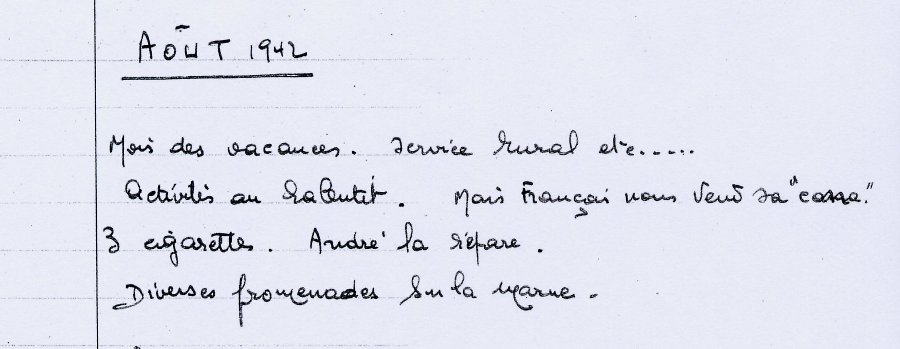 AOÛT 1942
Mois des vacances. Service rural etc.....
Activités au ralenti. Mais Françoi nous vend sa "cassa".
3 cigarettes. André la répare.
Diverses promenades sur la Marne.